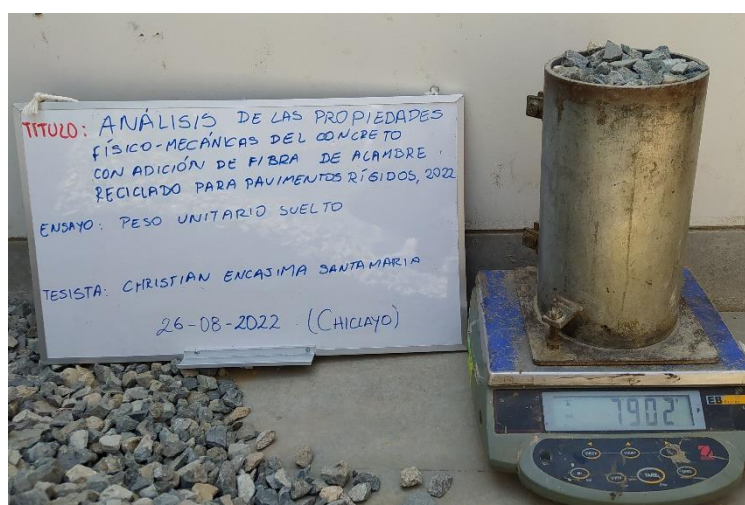 TITULO: ANÁLISIS DE LAS PROPIEDADES
FÍSICO-MECÁNICAS DEL CONCRETO
CON ADICIÓN DE FIBRA DE ALAMBRE
RECICLADO PARA PAVIMENTOS RÍGIDOS, 2022
ENSAYO: PESO UNITARIO SUELTO
TESISTA: CHRISTIAN ENCAJIMA SANTAMARIA
26-08-2022 (CHICLAYO)
7902
EB